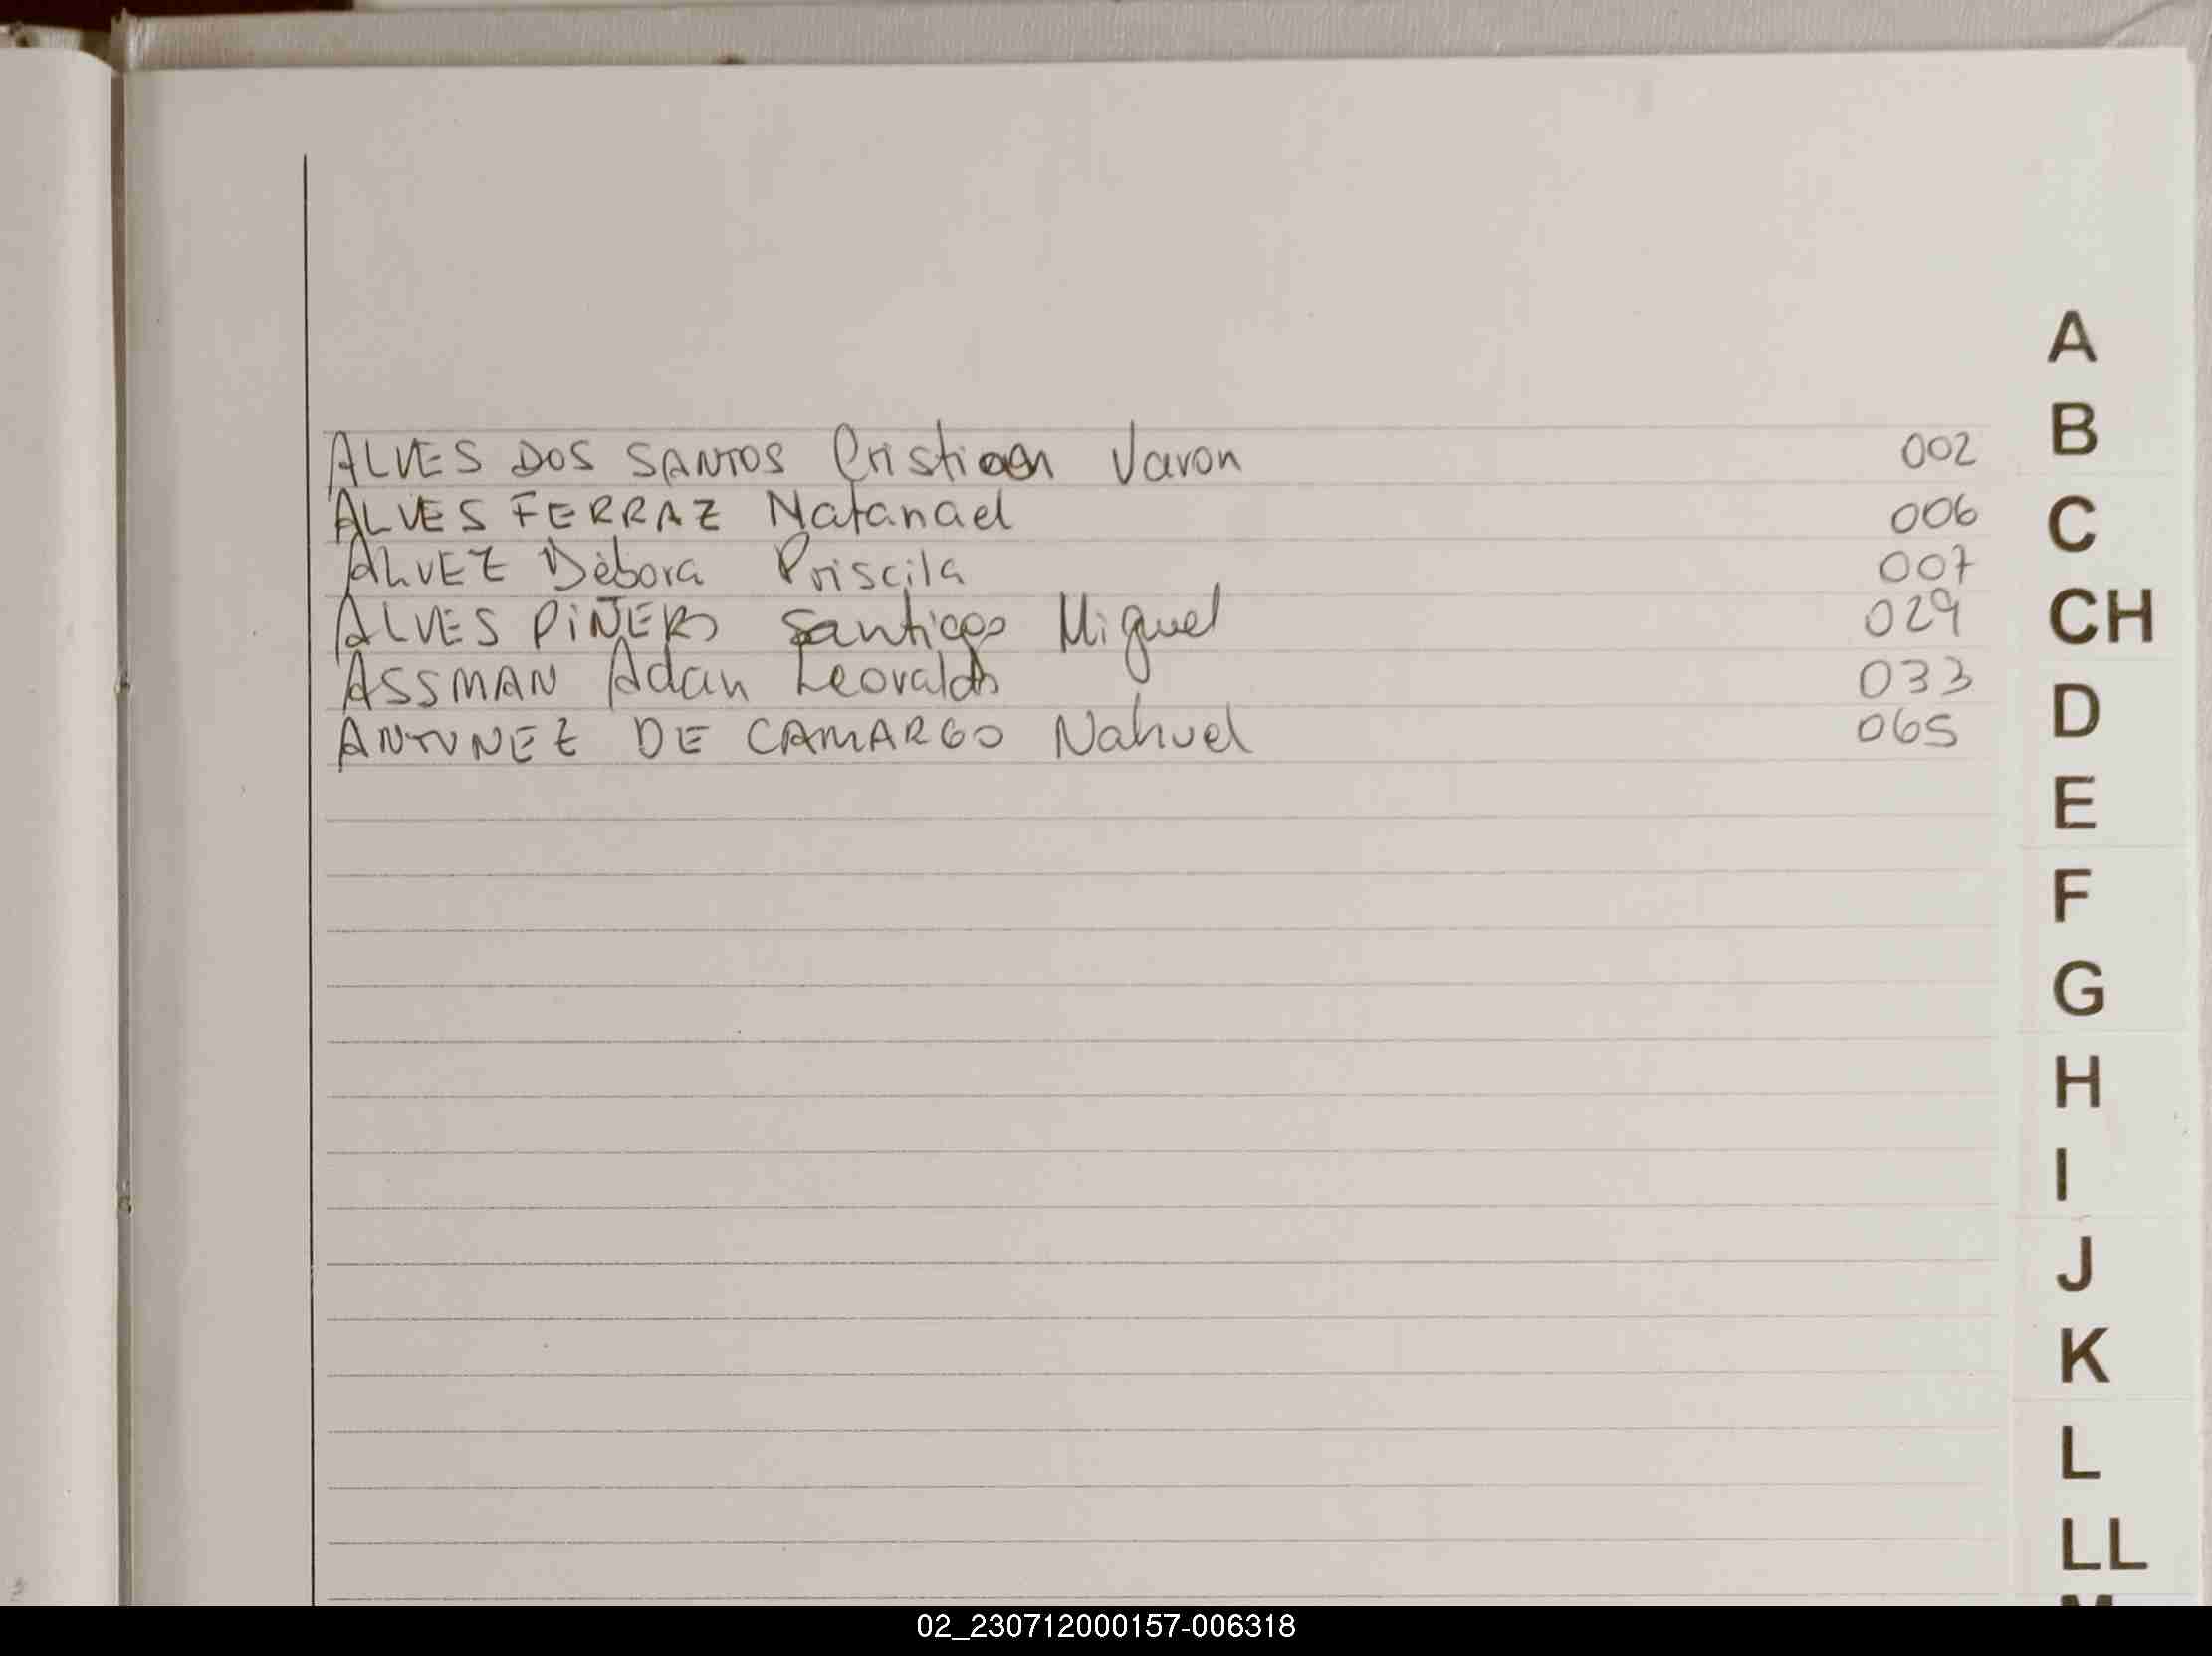 ALVES DOS SANTOS Cristian Varon 002
ALVES FERRAZ Natanael 006
ALVEZ Dèbora Priscila 007
ALVES PIÑERO Santiago Miguel 029
ASSMAN Adan Leovaldo 033
ANTUNEZ DE CAMARGO Nahuel 065
A
B
C
CH
D
E
F
G
H
I
J
K
L
LL
M
02_230712000157-006318